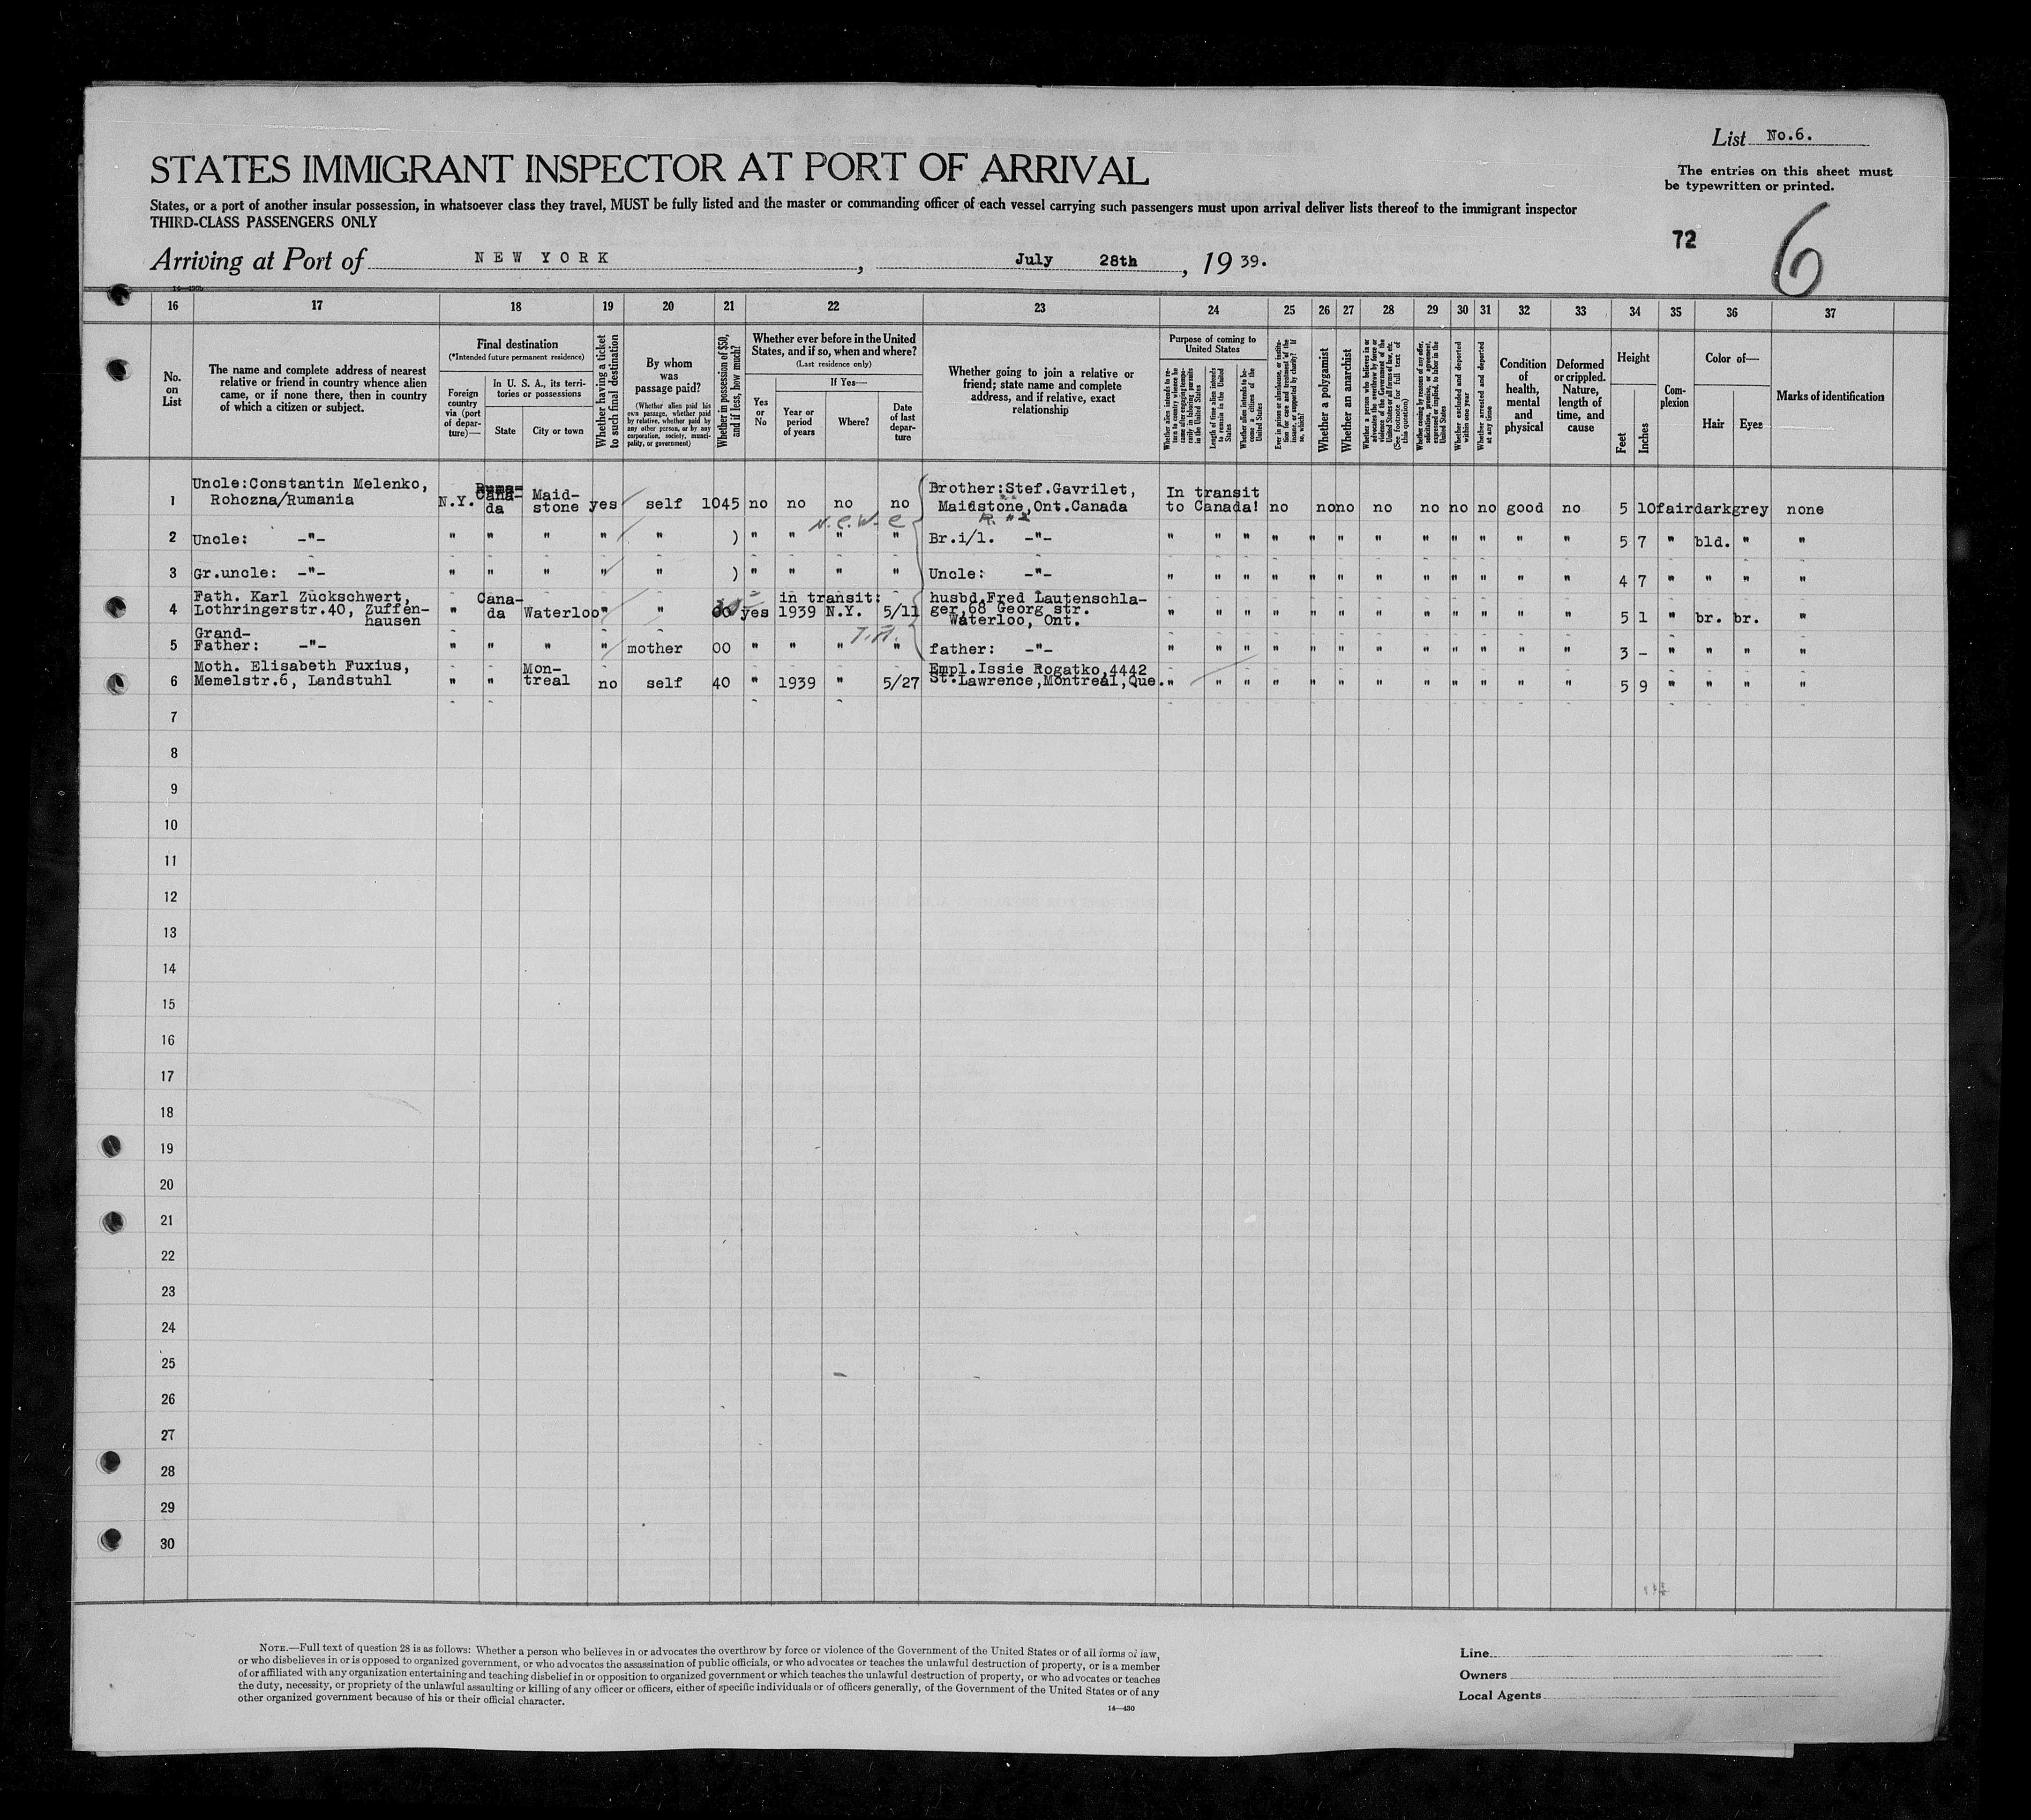 List No.6.
STATES IMMIGRANT INSPECTOR AT PORT OF ARRIVAL
The entries on this sheet must
be typewritten or printed.
States, or a port of another insular possession, in whatsoever class they travel, MUST be fully listed and the master or commanding officer of each vessel carrying such passengers must upon arrival deliver lists thereof to the immigrant inspector
THIRD-CLASS PASSENGERS ONLY
72
6
Arriving at Port of NEW YORK, July 28th, 1939.
16 17 18 19 20 21 22 23 24 25 26 27 28 29 30 31 32 33 34 35 36 37
No.
on
List
The name and complete address of nearest
relative or friend in country whence alien
came, or if none there, then in country
of which a citizen or subject.
Final destination
(*Intended future permanent residence)
Foreign
country
via (port
of depar-
ture)—
In U. S. A., its terri-
tories or possessions
State
City or town
Whether having a ticket
to such final destination
By whom
was
passage paid?
(Whether alien paid his
own passage, whether paid
by relative, whether paid by
any other person, or by any
corporation, society, munici-
pality, or government)
Whether in possession of $50,
and if less, how much?
Whether ever before in the United
States, and if so, when and where?
(Last residence only)
Yes
or
No
If Yes—
Year or
period
of years
Where?
Date
of last
depar-
ture
Whether going to join a relative or
friend; state name and complete
address, and if relative, exact
relationship
Purpose of coming to
United States
Whether alien intends to re-
turn to country whence he
came after engaging tempo-
rarily in laboring pursuits
in the United States
Length of time alien intends
to remain in the United
States
Whether alien intends to be-
come a citizen of the
United States
Ever in prison or almshouse, or institu-
tion for care and treatment of the
insane, or supported by charity? If
so, which?
Whether a polygamist
Whether an anarchist
Whether a person who believes in or
advocates the overthrow by force or
violence of the Government of the
United States or all forms of law, etc.
(See footnote for full text of
this question)
Whether coming by reasons of any offer,
solicitation, promise, or agreement,
expressed or implied, to labor in the
United States
Whether excluded and deported
within one year
Whether arrested and deported
at any time
Condition
of
health,
mental
and
physical
Deformed
or crippled.
Nature,
length of
time, and
cause
Height
Feet
Inches
Com-
plexion
Color of—
Hair
Eyes
Marks of identification
1 Uncle:Constantin Melenko,
Rohozna/Rumania N.Y. Cana-
da Maid-
stone yes self 1045 no no no no Brother:Stef.Gavrilet,
Maidstone,Ont.Canada In transit
to Canada! no no no no no no no good no 5 10 fair dark grey none
2 Uncle: -"- " " " " " ) " " " " Br.i/l. -"- " " " " " " " " " " " " 5 7 " bld. " "
3 Gr.uncle: -"- " " " " " ) " " " " Uncle: -"- " " " " " " " " " " " " 4 7 " " " "
4 Fath. Karl Zückschwert,
Lothringerstr.40, Zuffen-
hausen " Cana-
da Waterloo " " yes in transit:
1939 N.Y. 5/11 husbd.Fred Lautenschla-
ger,68 Georg str.
Waterloo, Ont. " " " " " " " " " " " " 5 1 " br. br. "
5 Grand-
Father: -"- " " " " mother 00 " " " " father: -"- " " " " " " " " " " " " 3 - " " " "
6 Moth. Elisabeth Fuxius,
Memelstr.6, Landstuhl " " Mon-
treal no self 40 " 1939 " 5/27 Empl.Issie Rogatko,4442
St.Lawrence,Montreal,Que. " " " " " " " " " " " " 5 9 " " " "
7
8
9
10
11
12
13
14
15
16
17
18
19
20
21
22
23
24
25
26
27
28
29
30
NOTE.—Full text of question 28 is as follows: Whether a person who believes in or advocates the overthrow by force or violence of the Government of the United States or of all forms of law,
or who disbelieves in or is opposed to organized government, or who advocates the assassination of public officials, or who advocates or teaches the unlawful destruction of property, or is a member
of or affiliated with any organization entertaining and teaching disbelief in or opposition to organized government or which teaches the unlawful destruction of property, or who advocates or teaches
the duty, necessity, or propriety of the unlawful assaulting or killing of any officer or officers, either of specific individuals or of officers generally, of the Government of the United States or of any
other organized government because of his or their official character.
14—430
Line
Owners
Local Agents